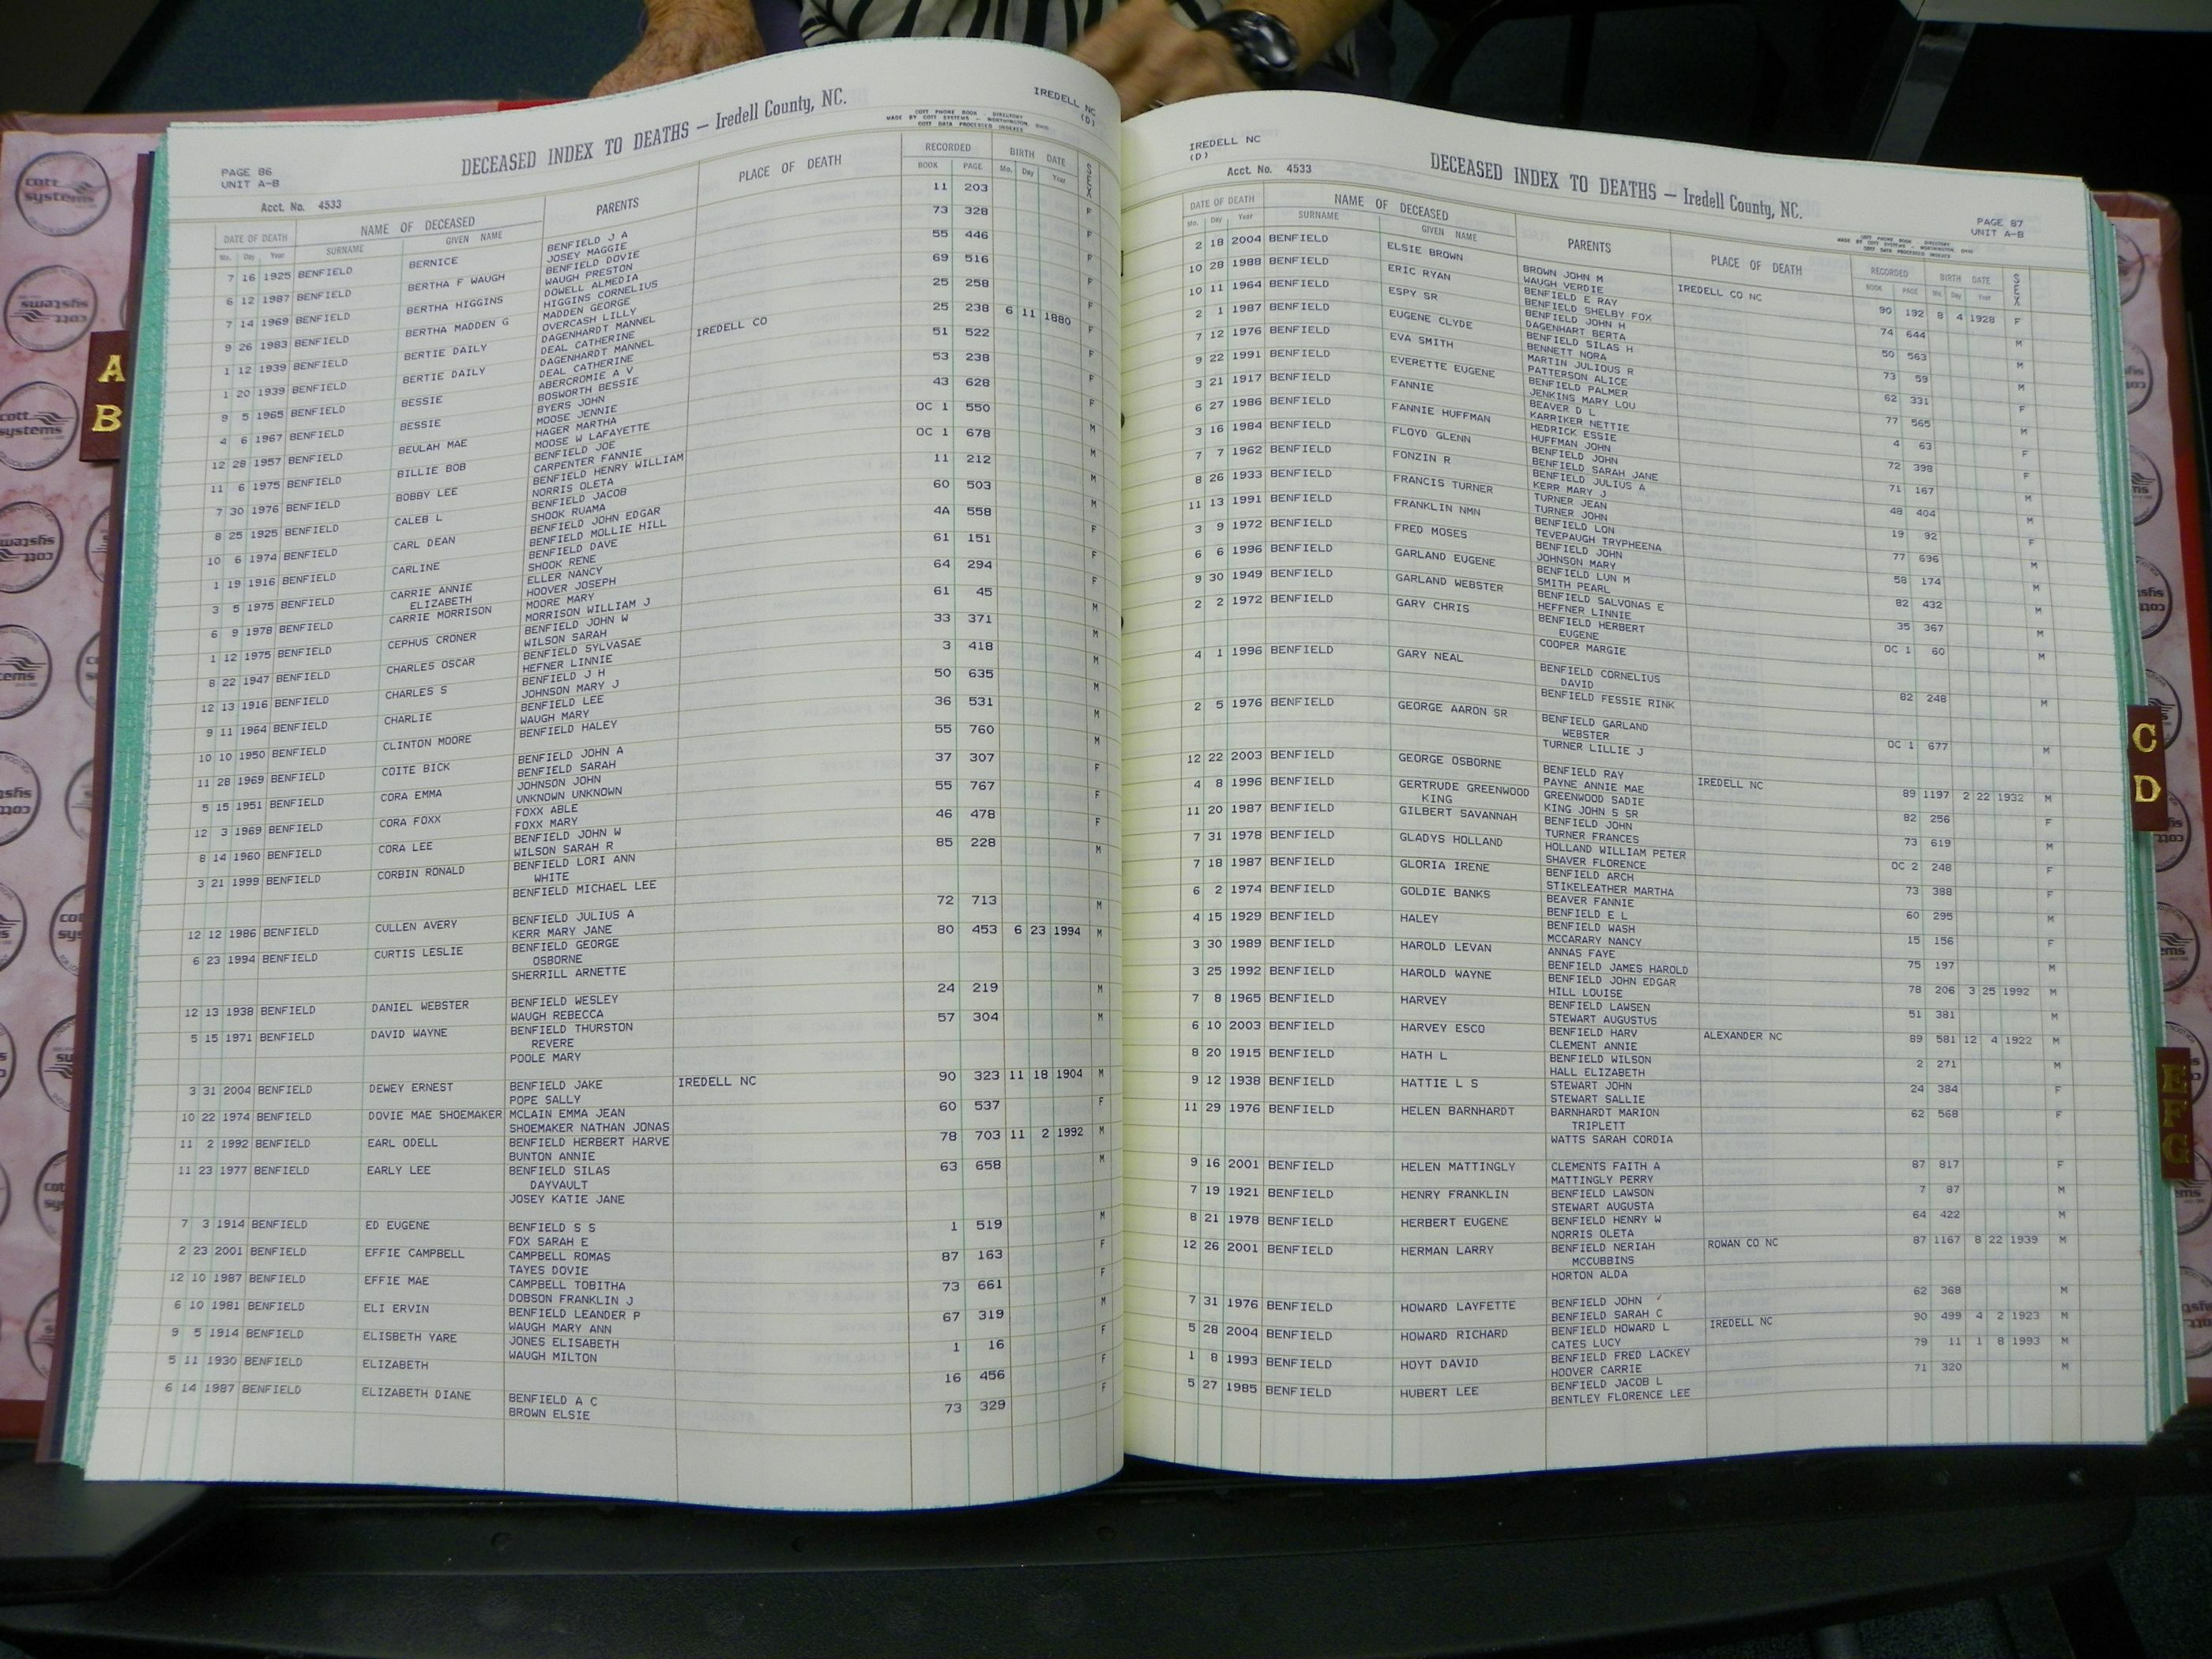 IREDELL NC
(D)
COTT PHONE BOOK - DIRECTORY
MADE BY COTT SYSTEMS - WORTHINGTON, OHIO
COTT DATA PROCESSED INDEXES
DECEASED INDEX TO DEATHS — Iredell County, NC.
PAGE 86
UNIT A-B
Acct. No. 4533
DATE OF DEATH NAME OF DECEASED PARENTS PLACE OF DEATH RECORDED BIRTH DATE SEX
Mo. Day Year SURNAME GIVEN NAME BOOK PAGE Mo. Day Year
7 16 1925 BENFIELD BERNICE BENFIELD J A 11 203 F
JOSEY MAGGIE
6 12 1987 BENFIELD BERTHA F WAUGH BENFIELD DOVIE 73 328 F
WAUGH PRESTON
7 14 1969 BENFIELD BERTHA HIGGINS DOWELL ALMEDIA 55 446 F
HIGGINS CORNELIUS
9 26 1983 BENFIELD BERTHA MADDEN G MADDEN GEORGE 69 516 F
OVERCASH LILLY
1 12 1939 BENFIELD BERTIE DAILY DAGENHARDT MANNEL 25 258 F
DEAL CATHERINE
1 20 1939 BENFIELD BERTIE DAILY DAGENHARDT MANNEL IREDELL CO 25 238 6 11 1880 F
DEAL CATHERINE
9 5 1965 BENFIELD BESSIE ABERCROMIE A V 51 522 F
BOSWORTH BESSIE
4 6 1967 BENFIELD BESSIE BYERS JOHN 53 238 F
MOOSE JENNIE
12 28 1957 BENFIELD BEULAH MAE HAGER MARTHA 43 628
MOOSE W LAFAYETTE
11 6 1975 BENFIELD BILLIE BOB BENFIELD JOE OC 1 550 M
CARPENTER FANNIE
7 30 1976 BENFIELD BOBBY LEE BENFIELD HENRY WILLIAM OC 1 678 M
NORRIS OLETA
8 25 1925 BENFIELD CALEB L BENFIELD JACOB 11 212 M
SHOOK RUAMA
10 6 1974 BENFIELD CARL DEAN BENFIELD JOHN EDGAR 60 503 M
BENFIELD MOLLIE HILL
1 19 1916 BENFIELD CARLINE BENFIELD DAVE 4A 558 F
SHOOK RENE
3 5 1975 BENFIELD CARRIE ANNIE ELLER NANCY 61 151 F
ELIZABETH HOOVER JOSEPH
6 9 1978 BENFIELD CARRIE MORRISON MOORE MARY 64 294 F
MORRISON WILLIAM J
1 12 1975 BENFIELD CEPHUS CRONER BENFIELD JOHN W 61 45 M
WILSON SARAH
8 22 1947 BENFIELD CHARLES OSCAR BENFIELD SYLVASAE 33 371 M
HEFNER LINNIE
12 13 1916 BENFIELD CHARLES S BENFIELD J H 3 418 M
JOHNSON MARY J
9 11 1964 BENFIELD CHARLIE BENFIELD LEE 50 635 M
WAUGH MARY
10 10 1950 BENFIELD CLINTON MOORE BENFIELD HALEY 36 531 M
11 28 1969 BENFIELD COITE BICK BENFIELD JOHN A 55 760 M
BENFIELD SARAH
5 15 1951 BENFIELD CORA EMMA JOHNSON JOHN 37 307 F
UNKNOWN UNKNOWN
12 3 1969 BENFIELD CORA FOXX FOXX ABLE 55 767 F
FOXX MARY
8 14 1960 BENFIELD CORA LEE BENFIELD JOHN W 46 478 F
WILSON SARAH R
3 21 1999 BENFIELD CORBIN RONALD BENFIELD LORI ANN 85 228 M
WHITE
BENFIELD MICHAEL LEE
12 12 1986 BENFIELD CULLEN AVERY BENFIELD JULIUS A 72 713 M
KERR MARY JANE
6 23 1994 BENFIELD CURTIS LESLIE BENFIELD GEORGE 80 453 6 23 1994 M
OSBORNE
SHERRILL ARNETTE
12 13 1938 BENFIELD DANIEL WEBSTER BENFIELD WESLEY 24 219 M
WAUGH REBECCA
5 15 1971 BENFIELD DAVID WAYNE BENFIELD THURSTON 57 304 M
REVERE
POOLE MARY
3 31 2004 BENFIELD DEWEY ERNEST BENFIELD JAKE IREDELL NC 90 323 11 18 1904 M
POPE SALLY
10 22 1974 BENFIELD DOVIE MAE SHOEMAKER MCLAIN EMMA JEAN 60 537 F
SHOEMAKER NATHAN JONAS
11 2 1992 BENFIELD EARL ODELL BENFIELD HERBERT HARVE 78 703 11 2 1992 M
BUNTON ANNIE
11 23 1977 BENFIELD EARLY LEE BENFIELD SILAS 63 658 M
DAYVAULT
JOSEY KATIE JANE
7 3 1914 BENFIELD ED EUGENE BENFIELD S S 1 519 M
FOX SARAH E
2 23 2001 BENFIELD EFFIE CAMPBELL CAMPBELL ROMAS 87 163 F
TAYES DOVIE
12 10 1987 BENFIELD EFFIE MAE CAMPBELL TOBITHA 73 661 F
DOBSON FRANKLIN J
6 10 1981 BENFIELD ELI ERVIN BENFIELD LEANDER P 67 319 M
WAUGH MARY ANN
9 5 1914 BENFIELD ELISBETH YARE JONES ELISABETH 1 16 F
WAUGH MILTON
5 11 1930 BENFIELD ELIZABETH 16 456 F
6 14 1987 BENFIELD ELIZABETH DIANE BENFIELD A C 73 329 F
BROWN ELSIE
IREDELL NC
(D)
Acct. No. 4533
DECEASED INDEX TO DEATHS — Iredell County, NC.
PAGE 87
UNIT A-B
COTT PHONE BOOK - DIRECTORY
MADE BY COTT SYSTEMS - WORTHINGTON, OHIO
COTT DATA PROCESSED INDEXES
DATE OF DEATH NAME OF DECEASED PARENTS PLACE OF DEATH RECORDED BIRTH DATE SEX
Mo. Day Year SURNAME GIVEN NAME BOOK PAGE Mo. Day Year
2 18 2004 BENFIELD ELSIE BROWN BROWN JOHN M IREDELL CO NC 90 192 8 4 1928 F
WAUGH VERDIE
10 28 1988 BENFIELD ERIC RYAN BENFIELD E RAY 74 644 M
BENFIELD SHELBY FOX
10 11 1964 BENFIELD ESPY SR BENFIELD JOHN H 50 563 M
DAGENHART BERTA
2 1 1987 BENFIELD EUGENE CLYDE BENFIELD SILAS H 73 59 M
BENNETT NORA
7 12 1976 BENFIELD EVA SMITH MARTIN JULIOUS R 62 331 F
PATTERSON ALICE
9 22 1991 BENFIELD EVERETTE EUGENE BENFIELD PALMER 77 565 M
JENKINS MARY LOU
3 21 1917 BENFIELD FANNIE BEAVER D L 4 63 F
KARRIKER NETTIE
6 27 1986 BENFIELD FANNIE HUFFMAN HEDRICK ESSIE 72 398 F
HUFFMAN JOHN
3 16 1984 BENFIELD FLOYD GLENN BENFIELD JOHN 71 167 M
BENFIELD SARAH JANE
7 7 1962 BENFIELD FONZIN R BENFIELD JULIUS A 48 404 M
KERR MARY J
8 26 1933 BENFIELD FRANCIS TURNER TURNER JEAN 19 92 F
TURNER JOHN
11 13 1991 BENFIELD FRANKLIN NMN BENFIELD LON 77 696 M
TEVEPAUGH TRYPHEENA
3 9 1972 BENFIELD FRED MOSES BENFIELD JOHN 58 174 M
JOHNSON MARY
6 6 1996 BENFIELD GARLAND EUGENE BENFIELD LUN M 82 432 M
SMITH PEARL
9 30 1949 BENFIELD GARLAND WEBSTER BENFIELD SALVONAS E 35 367 M
HEFFNER LINNIE
2 2 1972 BENFIELD GARY CHRIS BENFIELD HERBERT OC 1 60 M
EUGENE
COOPER MARGIE
4 1 1996 BENFIELD GARY NEAL BENFIELD CORNELIUS 82 248 M
DAVID
BENFIELD FESSIE RINK
2 5 1976 BENFIELD GEORGE AARON SR BENFIELD GARLAND OC 1 677 M
WEBSTER
TURNER LILLIE J
12 22 2003 BENFIELD GEORGE OSBORNE BENFIELD RAY IREDELL NC 89 1197 2 22 1932 M
PAYNE ANNIE MAE
4 8 1996 BENFIELD GERTRUDE GREENWOOD GREENWOOD SADIE 82 256 F
KING KING JOHN S SR
11 20 1987 BENFIELD GILBERT SAVANNAH BENFIELD JOHN 73 619 M
TURNER FRANCES
7 31 1978 BENFIELD GLADYS HOLLAND HOLLAND WILLIAM PETER OC 2 248 F
SHAVER FLORENCE
7 18 1987 BENFIELD GLORIA IRENE BENFIELD ARCH 73 388 F
STIKELEATHER MARTHA
6 2 1974 BENFIELD GOLDIE BANKS BEAVER FANNIE 60 295 M
BENFIELD E L
4 15 1929 BENFIELD HALEY BENFIELD WASH 15 156 F
MCCARARY NANCY
3 30 1989 BENFIELD HAROLD LEVAN ANNAS FAYE 75 197 M
BENFIELD JAMES HAROLD
3 25 1992 BENFIELD HAROLD WAYNE BENFIELD JOHN EDGAR 78 206 3 25 1992 M
HILL LOUISE
7 8 1965 BENFIELD HARVEY BENFIELD LAWSEN 51 381 M
STEWART AUGUSTUS
6 10 2003 BENFIELD HARVEY ESCO BENFIELD HARV ALEXANDER NC 89 581 12 4 1922 M
CLEMENT ANNIE
8 20 1915 BENFIELD HATH L BENFIELD WILSON 2 271 M
HALL ELIZABETH
9 12 1938 BENFIELD HATTIE L S STEWART JOHN 24 384 F
STEWART SALLIE
11 29 1976 BENFIELD HELEN BARNHARDT BARNHARDT MARION 62 568 F
TRIPLETT
WATTS SARAH CORDIA
9 16 2001 BENFIELD HELEN MATTINGLY CLEMENTS FAITH A 87 817 F
MATTINGLY PERRY
7 19 1921 BENFIELD HENRY FRANKLIN BENFIELD LAWSON 7 87 M
STEWART AUGUSTA
8 21 1978 BENFIELD HERBERT EUGENE BENFIELD HENRY W 64 422 M
NORRIS OLETA
12 26 2001 BENFIELD HERMAN LARRY BENFIELD NERIAH ROWAN CO NC 87 1167 8 22 1939 M
MCCUBBINS
HORTON ALDA
7 31 1976 BENFIELD HOWARD LAYFETTE BENFIELD JOHN 62 368 M
BENFIELD SARAH C
5 28 2004 BENFIELD HOWARD RICHARD BENFIELD HOWARD L IREDELL NC 90 499 4 2 1923 M
CATES LUCY
1 8 1993 BENFIELD HOYT DAVID BENFIELD FRED LACKEY 79 11 1 8 1993 M
HOOVER CARRIE
5 27 1985 BENFIELD HUBERT LEE BENFIELD JACOB L 71 320 M
BENTLEY FLORENCE LEE
A
B
C
D
E
F
G
cott
systems